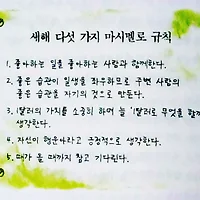 새해 다섯 가지 마시멜로 규칙
1. 좋아하는 일을 좋아하는 사람과 함께한다.
2. 좋은 습관이 일생을 좌우하므로 주변 사람의
좋은 습관을 자기의 것으로 만든다.
3. 1달러의 가치를 소중히 하며 늘 1달러로 무엇을 할까
생각한다.
4. 자신이 행운아라고 긍정적으로 생각한다.
5. 때가 올 때까지 참고 기다린다.